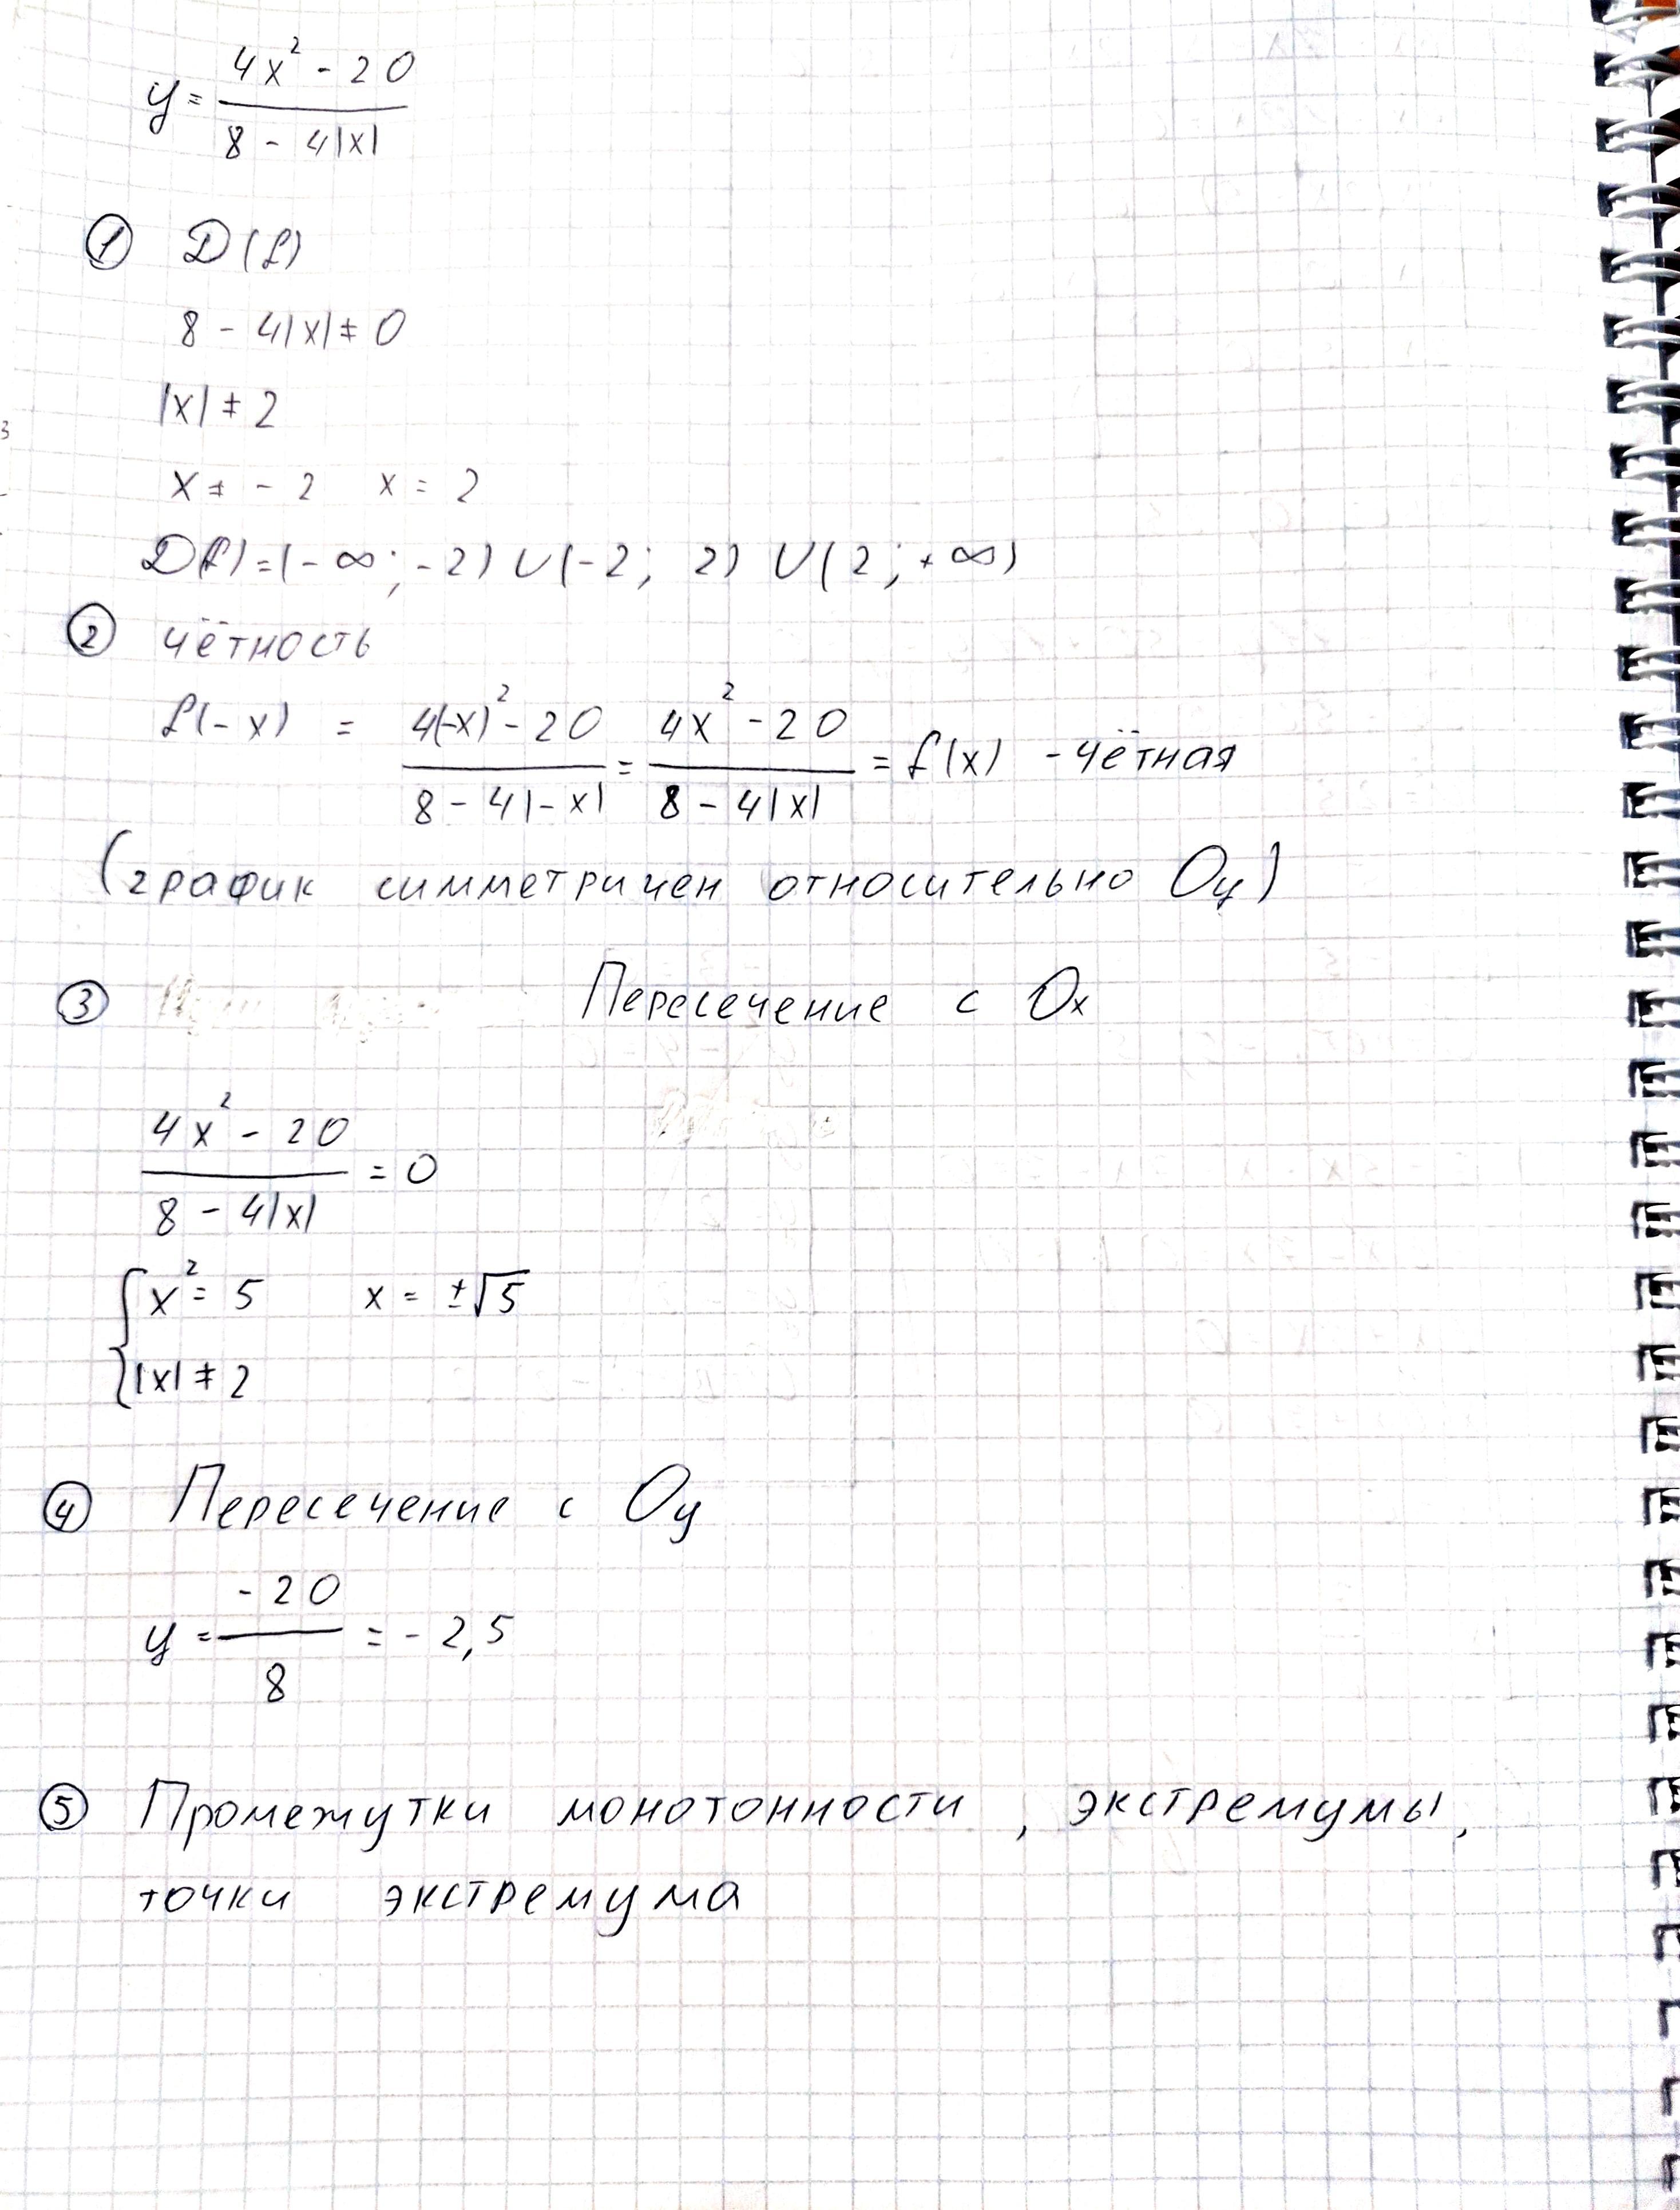 y = (4x² - 20) / (8 - 4|x|)
① D(f)
8 - 4|x| ≠ 0
|x| ≠ 2
x ≠ - 2 x = 2
D(f) = (- ∞; - 2) ∪ (- 2; 2) ∪ (2; + ∞)
② чётность
f(- x) = (4(-x)² - 20) / (8 - 4|-x|) = (4x² - 20) / (8 - 4|x|) = f(x) - чётная
(график симметричен относительно Oy)
③ Пересечение с Ox
(4x² - 20) / (8 - 4|x|) = 0
{ x² = 5 x = ±√5
|x| ≠ 2
④ Пересечение с Oy
y = -20 / 8 = - 2,5
⑤ Промежутки монотонности, экстремумы,
точки экстремума